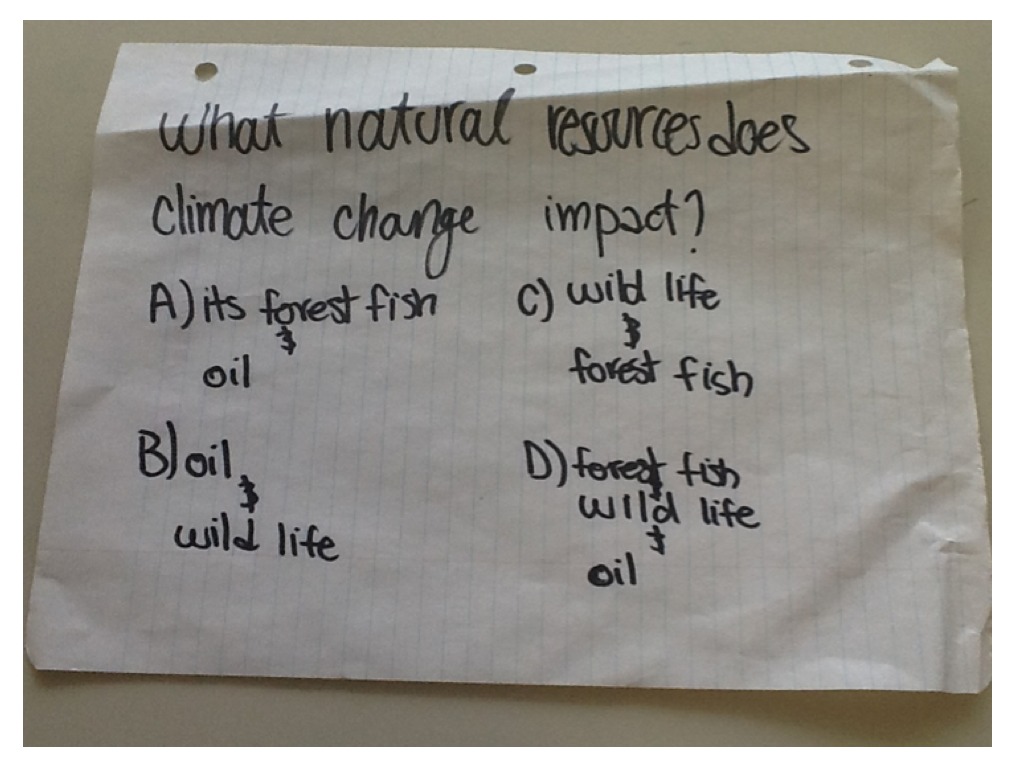 What natural resources does
climate change impact?
A) its forest fish
&
oil
B) oil
&
wild life
C) wild life
&
forest fish
D) forest fish
wild life
&
oil